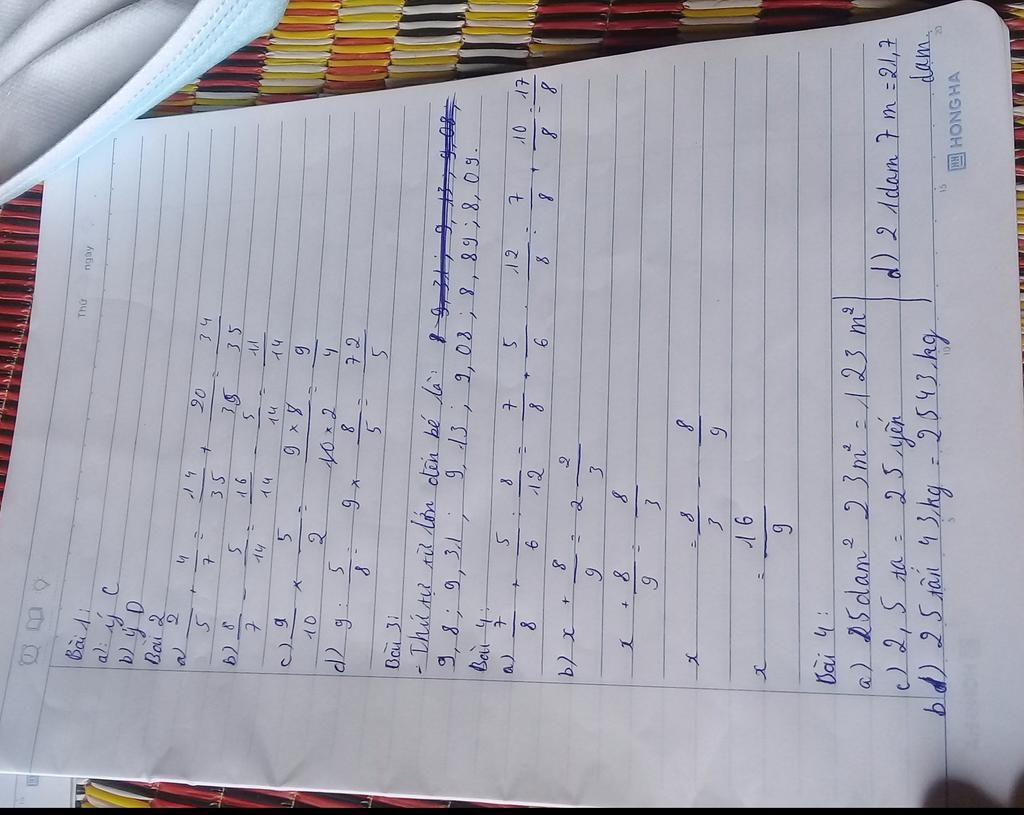 Thứ ngày
Bài 1:
a) ý C
b) ý D
Bài 2
a) 2/5 + 4/7 = 14/35 + 20/35 = 34/35
b) 8/7 - 5/14 = 16/14 - 5/14 = 11/14
c) 9/10 × 5/2 = 9 × 8/10 × 2 = 9/4
d) 9 : 5/8 = 9 × 8/5 = 72/5
Bài 3:
- Thứ tự từ lớn đến bé là:
9,8 ; 9,31 ; 9,13 ; 9,08 ; 8,89 ; 8,09.
Bài 4:
a) 7/8 + 5/6 : 8/12 = 7/8 + 5/6 . 12/8 = 7/8 + 10/8 = 17/8
b) x + 8/9 = 2 2/3
x + 8/9 = 8/3
x = 8/3 - 8/9
x = 16/9
Bài 4:
a) 25dam² 23m² = 123 m²
c) 2,5 tạ = 25 yến
b) 25 tấi 43kg = 2543 kg
d) 21dam 7m = 21,7
dam
HONGHA